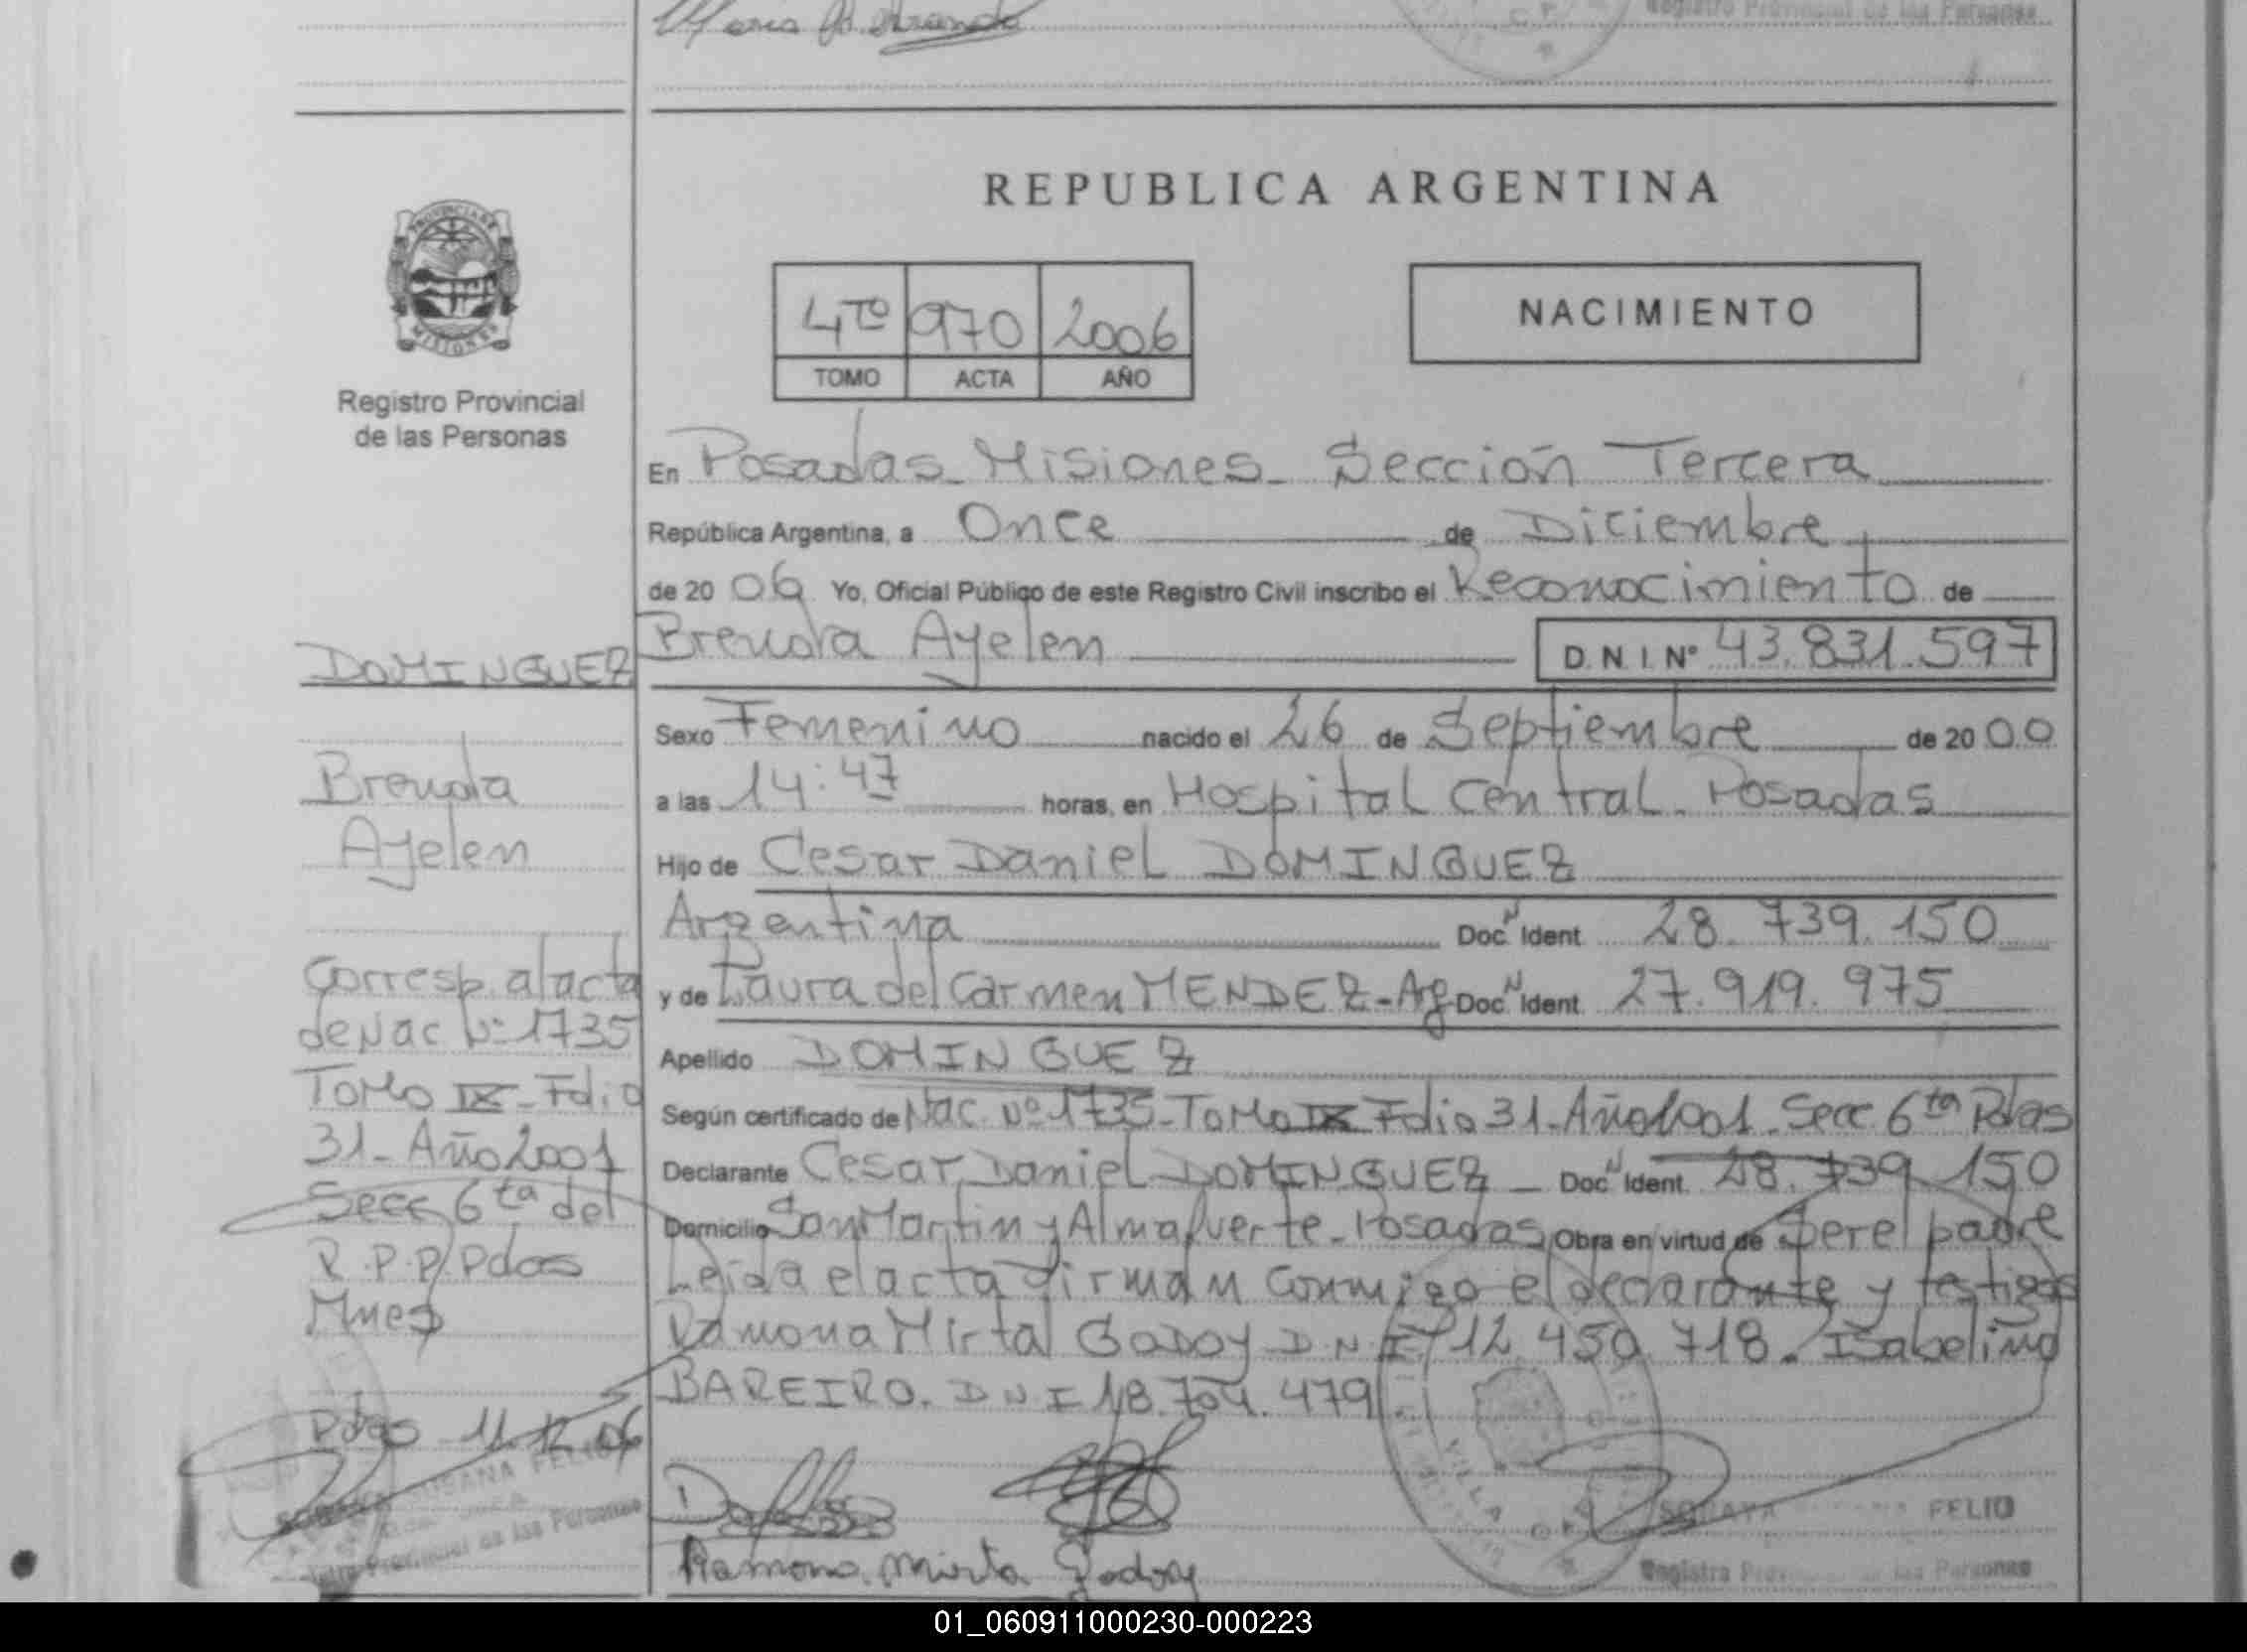 Registro Provincial de las Personas
REPUBLICA ARGENTINA
4TO 970 2006
TOMO ACTA AÑO
NACIMIENTO
PROVINCIA DE
MISIONES
Registro Provincial
de las Personas
En Posadas - Misiones - Sección Tercera
República Argentina, a Once de Diciembre
de 20 06 Yo, Oficial Público de este Registro Civil inscribo el Reconocimiento de
Brenda Ayelen D.N.I. Nº 43.831.597
Sexo Femenino nacido el 26 de Septiembre de 20 00
a las 14:47 horas, en Hospital Central - Posadas
Hijo de Cesar Daniel DOMINGUEZ
Argentina Doc. N Ident. 28.739.150
y de Laura del Carmen MENDEZ - Arg Doc. N Ident. 27.919.975
Apellido DOMINGUEZ
Según certificado de Nac. Nº 1735 - Tomo IX Folio 31 - Año 2001 - Secc 6ta Pdas
Declarante Cesar Daniel DOMINGUEZ - Doc. N Ident. 28.739.150
Domicilio San Martin y Almafuerte - Posadas Obra en virtud de Ser el padre
Leida el acta firman conmigo el declarante y testigos
Ramona Mirta GODOY D.N.I 12.450.718. Isabelino
BAREIRO. DNI 18.704.479.
Ramona Mirta Godoy
SORAYA FELIO
Registro Provincial de las Personas
DOMINGUEZ
Brenda
Ayelen
Corresp. al acta
de Nac Nº 1735
Tomo IX - Folio
31 - Año 2001
Secc 6ta del
R.P.P. Pdas
Mnes
Pdas 11.12.06
SORAYA FELIO
Registro Provincial de las Personas
01_060911000230-000223